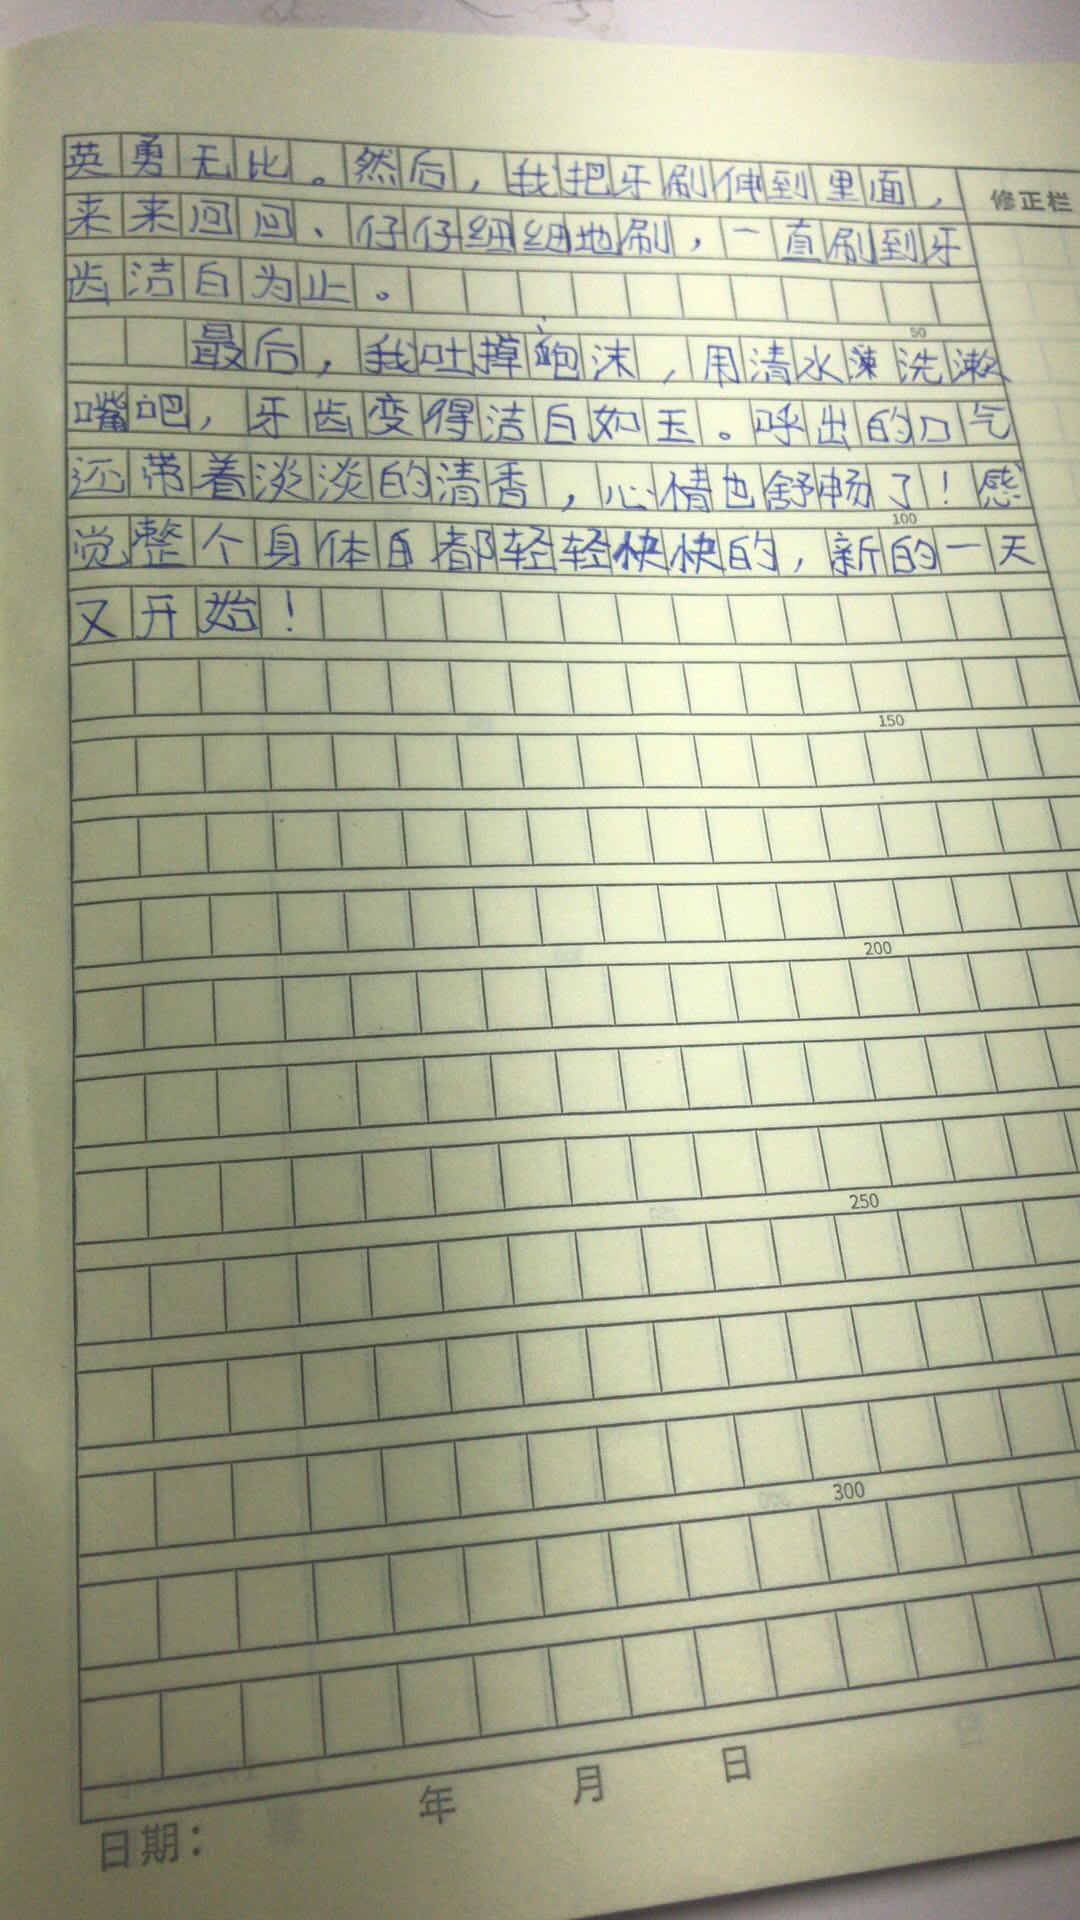 英勇无比。然后，我把牙刷伸到里面，
修正栏
来来回回、仔仔细细地刷，一直刷到牙
齿洁白为止。
50
最后，我吐掉泡沫，用清水涑洗漱
嘴吧，牙齿变得洁白如玉。呼出的口气
还带着淡淡的清香，心情也舒畅了！感
100
觉整个身体自都轻轻快快的，新的一天
又开始！
150
200
250
300
日期： 年 月 日